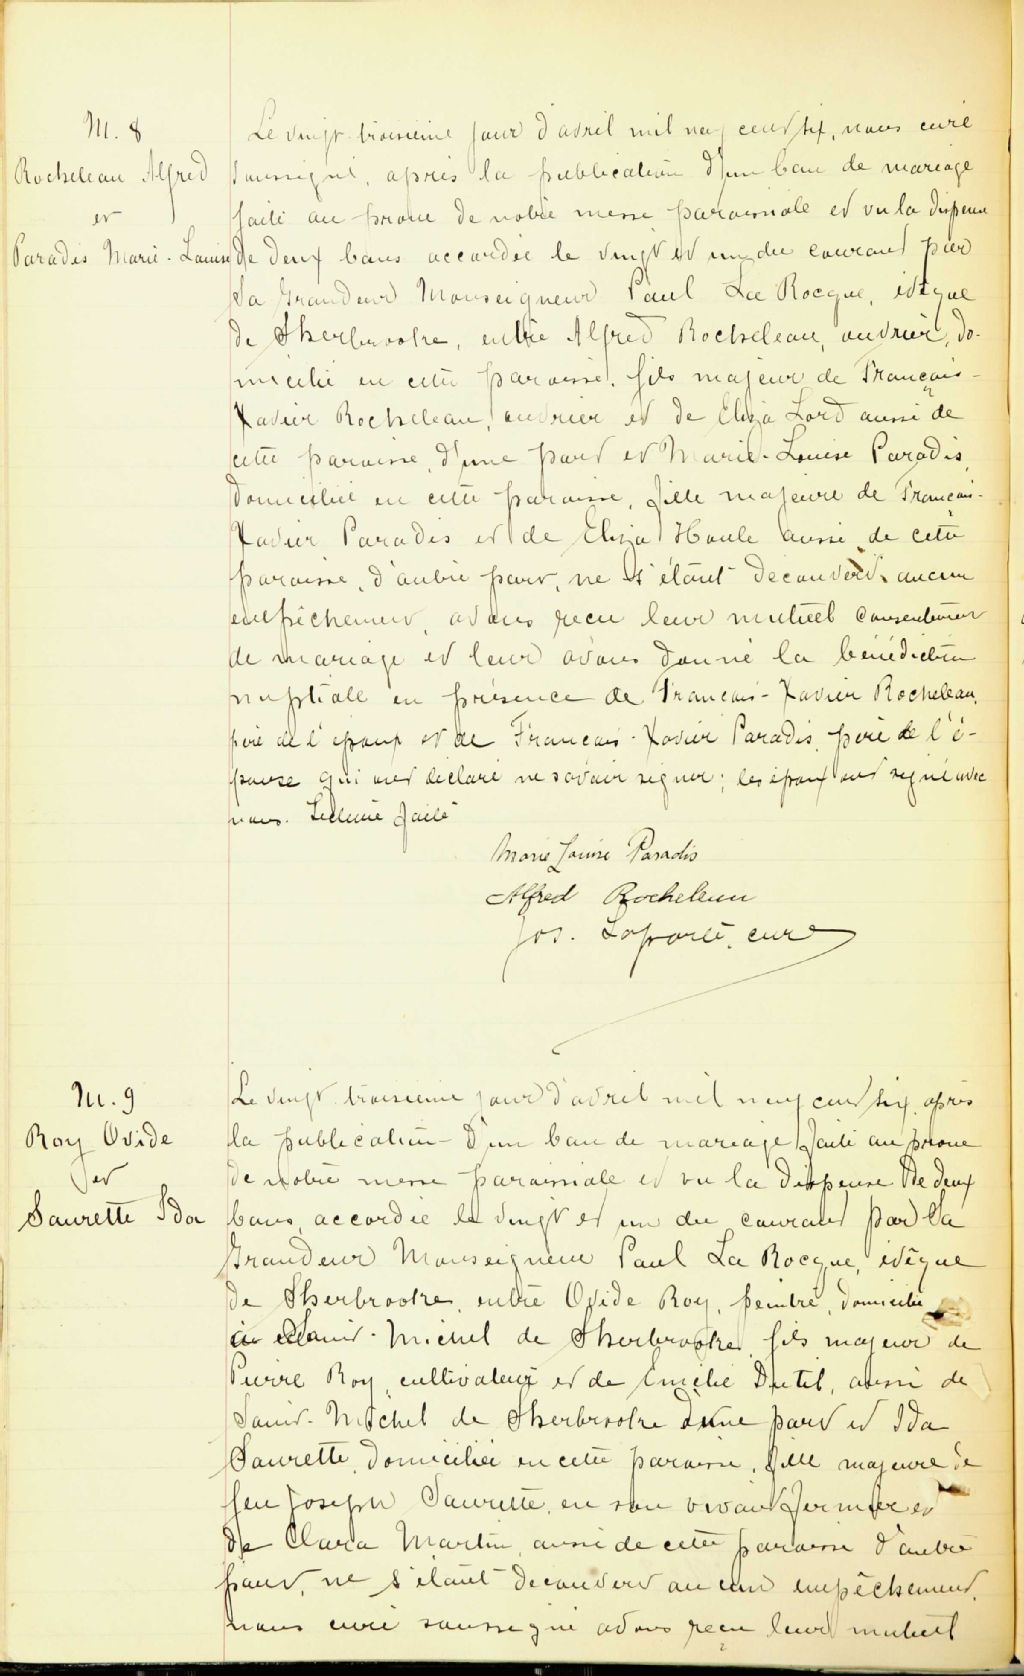 M. 8
Rocheleau Alfred
et
Paradis Marie-Louise
Le vingt troisième jour d'avril mil neuf cent six, nous curé
soussigné, après la publication d'un ban de mariage
faite au prône de notre messe paroissiale et vu la dispense
de deux bans accordée le vingt et un du courant par
Sa Grandeur Monseigneur Paul La Rocque, évêque
de Sherbrooke, entre Alfred Rocheleau, ouvrier, do-
micilié en cette paroisse, fils majeur de François-
Xavier Rocheleau, ouvrier et de Eliza Lord aussi de
cette paroisse, d'une part et Marie-Louise Paradis,
domiciliée en cette paroisse, fille majeure de François-
Xavier Paradis et de Eliza Houle aussi de cette
paroisse, d'autre part, ne s'étant découvert aucun
empêchement, avons reçu leur mutuel consentement
de mariage et leur avons donné la bénédiction
nuptiale en présence de François-Xavier Rocheleau,
père de l'époux et de François-Xavier Paradis, père de l'é-
pouse qui ont déclaré ne savoir signer; les époux ont signé avec
nous. Lecture faite
Marie Louise Paradis
Alfred Rocheleau
Jos. Laporte, curé
M. 9
Roy Ovide
et
Saurette Ida
Le vingt troisième jour d'avril mil neuf cent six, après
la publication d'un ban de mariage faite au prône
de notre messe paroissiale et vu la dispense de deux
bans accordée le vingt et un du courant par Sa
Grandeur Monseigneur Paul La Rocque, évêque
de Sherbrooke, entre Ovide Roy, peintre, domicilié
à Saint-Michel de Sherbrooke, fils majeur de
Pierre Roy, cultivateur et de Emélie Dutil, aussi de
Saint-Michel de Sherbrooke d'une part et Ida
Saurette, domiciliée en cette paroisse, fille majeure de
feu Joseph Saurette, en son vivant fermier et
de Clara Martin, aussi de cette paroisse d'autre
part, ne s'étant découvert aucun empêchement,
nous curé soussigné avons reçu leur mutuel